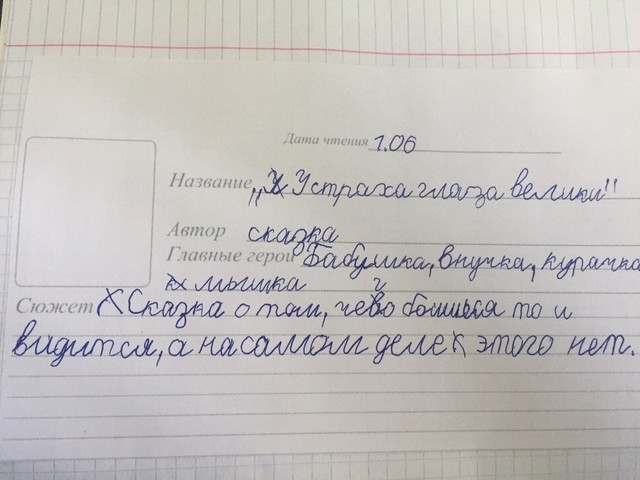 Дата чтения 1.06
Название „У страха глаза велики"
Автор сказка
Главные герои Бабушка, внучка, курачка
мышка
Сюжет Сказка о том, чего боишься то и
видится, а на самом деле этого нет.